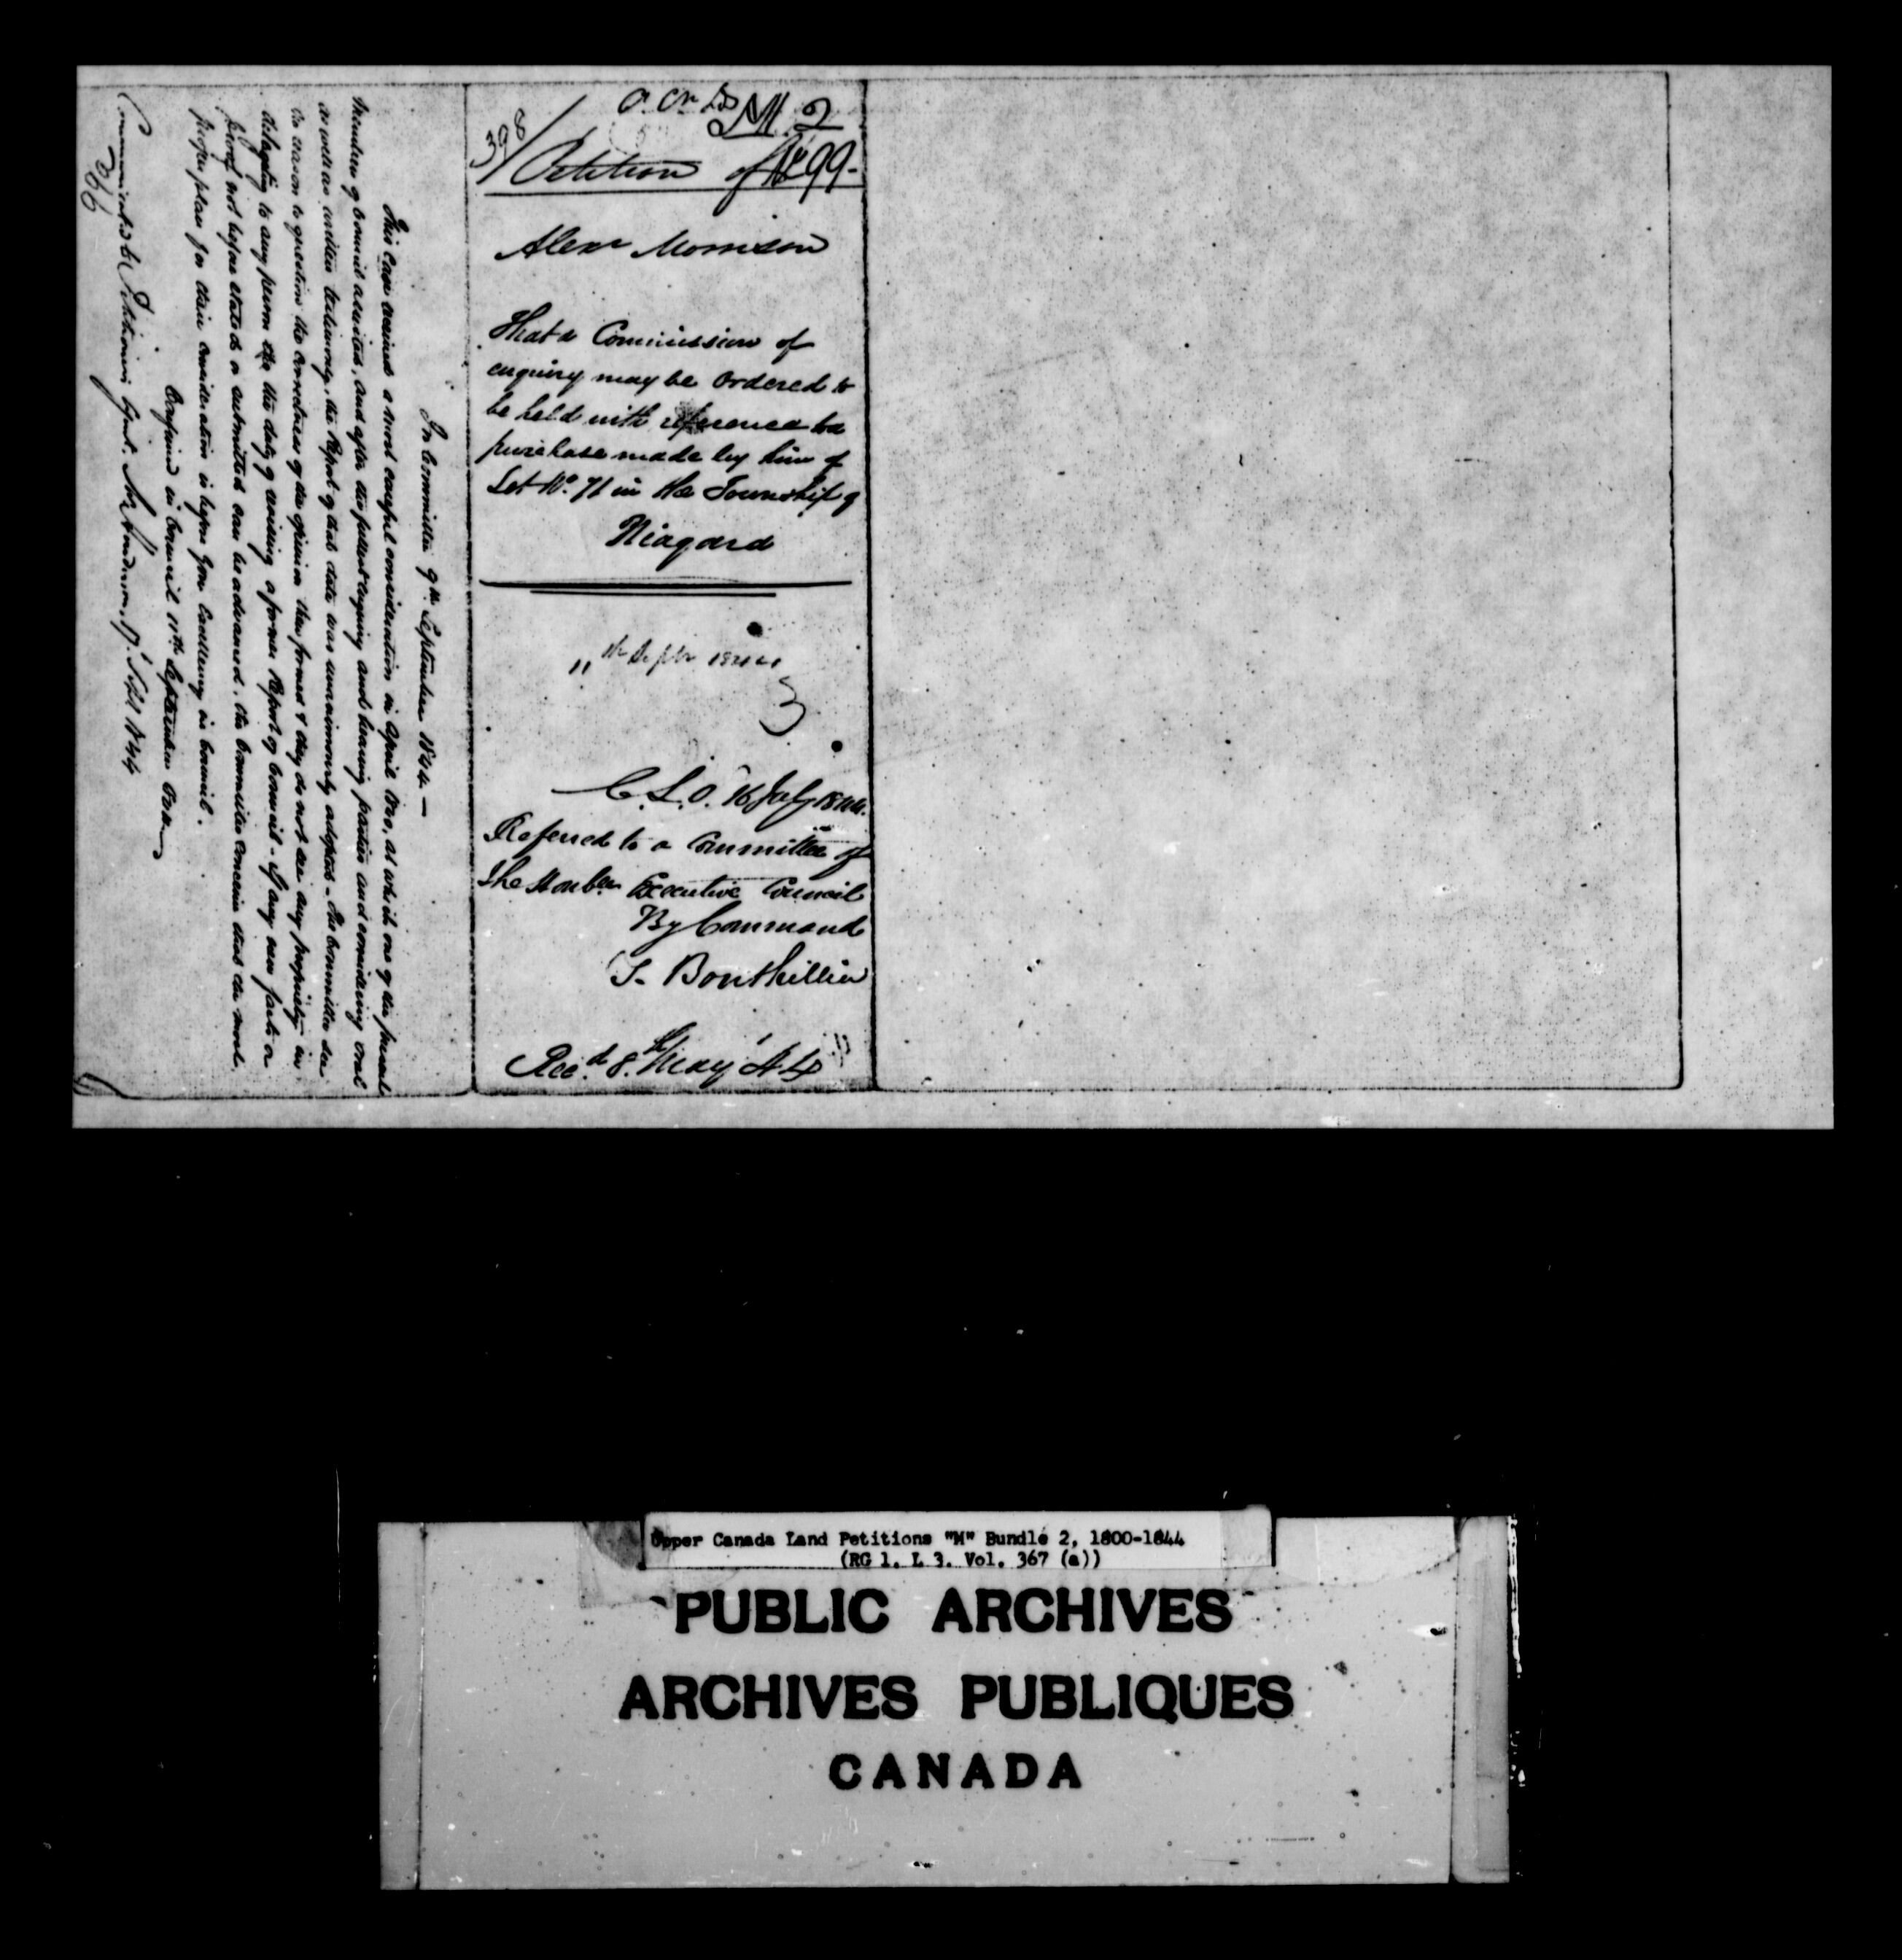 In Committee 9th September 1844 —
This Case received a most careful consideration in April 1840, at which one of the present
Members of Council assisted, and after the fullest enquiry and hearing parties and considering oral
as well as written testimony, the Report of that date was unanimously adopted – The Committee see
no reason to question the correctness of the opinion then formed & they do not see any propriety in
delegating to any person the duty of revising a former Report of Council – If any new facts or
proofs not before stated or submitted can be advanced, the Committee conceive that the most
proper place for their consideration is before Your Excellency in Council.
Confirmed in Council 11th September
Communicated to Petitioners Agent. 17. Sept 1844
366
M 2
398/
Petition of
No 99-
Alexr Morrison
That a Commission of
enquiry may be Ordered to
be held with reference to a
purchase made by him of
Lot No. 71 in the Township of
Niagara
11th Septr 1844
3
C.L.O. 16 July 1844.
Referred to a Committee of
the Honble Executive Council
By Command
T. Bouthillier
Recd. 8th May '44
Upper Canada Land Petitions "M" Bundle 2, 1800-1844
(RG 1, L 3, Vol. 367 (a))
PUBLIC ARCHIVES
ARCHIVES PUBLIQUES
CANADA